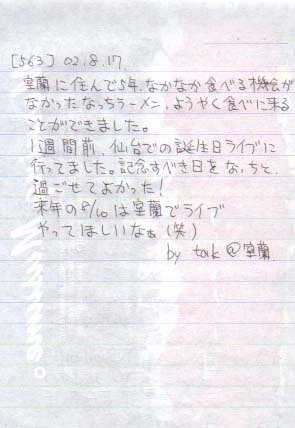 [563] 02.8.17
室蘭に住んで5年、なかなか食べる機会が
なかったなっちラーメン、ようやく食べに来る
ことができました。
1週間前、仙台での誕生日ライブに
行ってました。記念すべき日をなっちと
過ごせてよかった！
来年の8/10は室蘭でライブ
やってほしいなぁ(笑)
by tak@室蘭